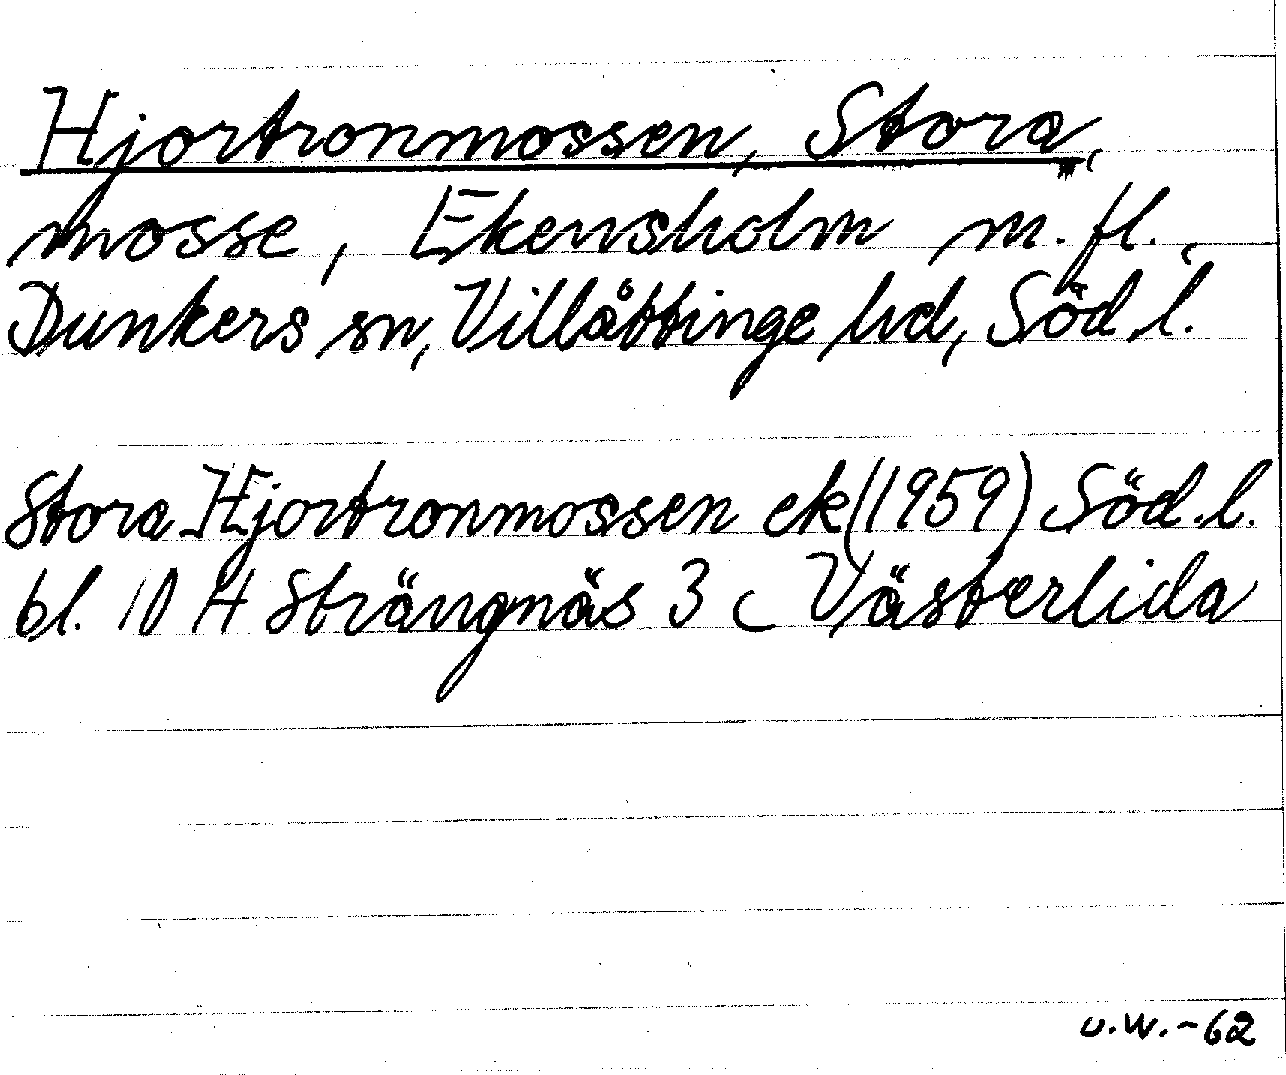 Hjortronmossen, Stora,
mosse, Ekensholm m.fl.,
Dunkers sn, Villåttinge hd, Söd.l.
Stora Hjortronmossen ek (1959) Söd.l.
bl. 10 H Strängnäs 3 c Västerlida
U.W.-62